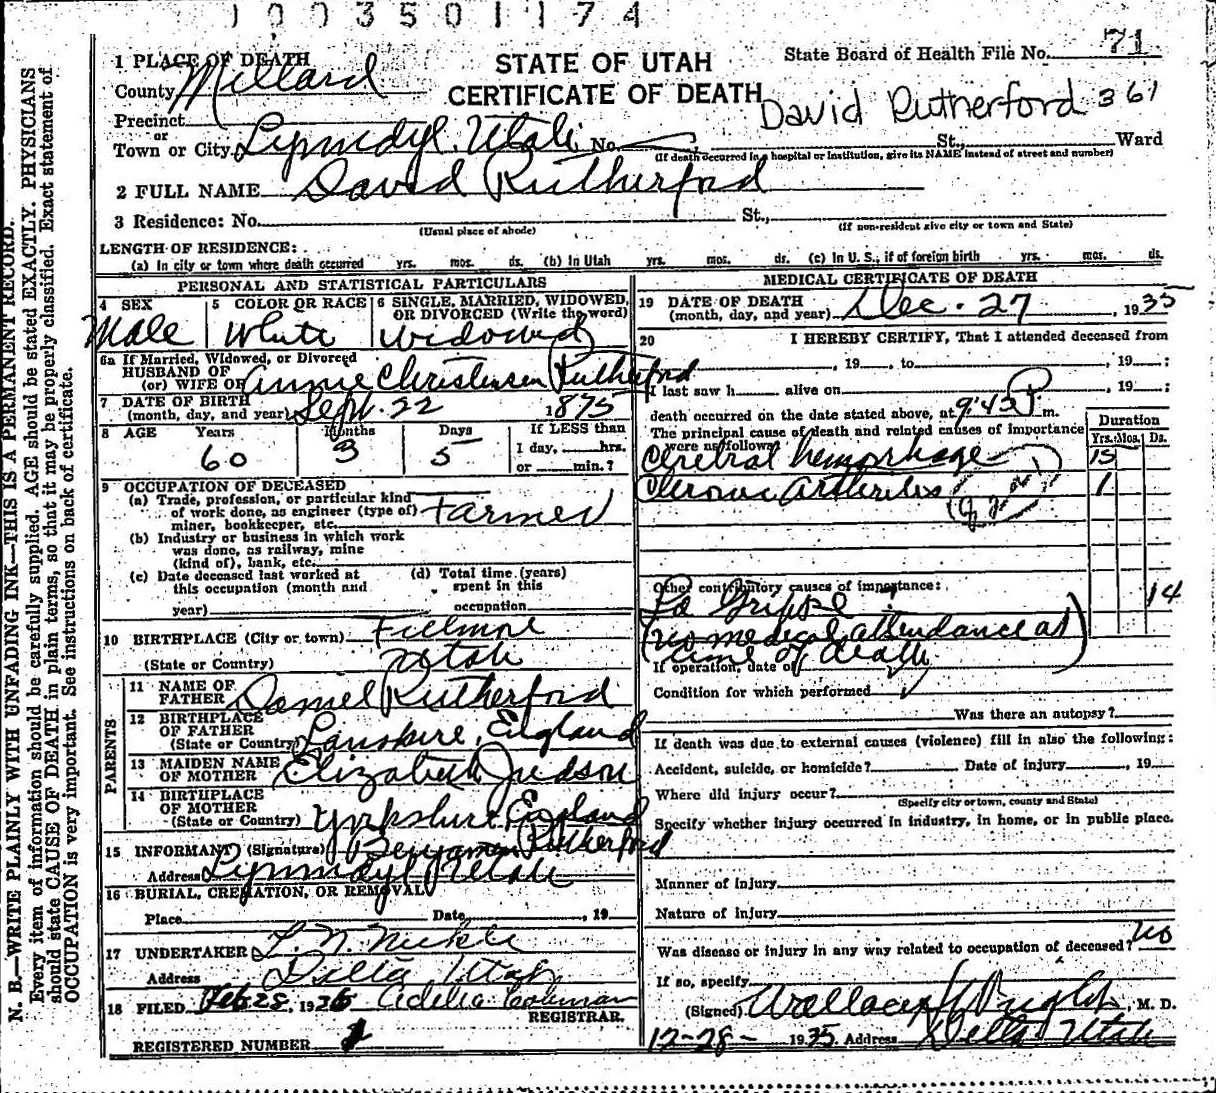 1003501174
1 PLACE OF DEATH
STATE OF UTAH
State Board of Health File No. 71
County Millard
CERTIFICATE OF DEATH
David Rutherford 361
Precinct
or
Town or City Lynndyl, Utah No. St., Ward
(If death occurred in a hospital or institution, give its NAME instead of street and number)
2 FULL NAME David Rutherford
3 Residence: No. St.,
(Usual place of abode) (If non-resident give city or town and State)
LENGTH OF RESIDENCE:
(a) In city or town where death occurred yrs. mos. ds. (b) In Utah yrs. mos. ds. (c) In U. S., if of foreign birth yrs. mos. ds.
PERSONAL AND STATISTICAL PARTICULARS
4 SEX Male
5 COLOR OR RACE White
6 SINGLE, MARRIED, WIDOWED, OR DIVORCED (Write the word) Widowed
6a If Married, Widowed, or Divorced
HUSBAND OF
(or) WIFE OF Annie Christensen Rutherford
7 DATE OF BIRTH
(month, day, and year) Sept. 22 1875
8 AGE Years Months Days If LESS than
60 3 5 1 day, hrs.
or min.?
9 OCCUPATION OF DECEASED
(a) Trade, profession, or particular kind
of work done, as engineer (type of)
miner, bookkeeper, etc. Farmer
(b) Industry or business in which work
was done, as railway, mine
(kind of), bank, etc.
(c) Date deceased last worked at
this occupation (month and
year)
(d) Total time (years)
spent in this
occupation
10 BIRTHPLACE (City or town) Fillmore
(State or Country) Utah
PARENTS
11 NAME OF
FATHER Daniel Rutherford
12 BIRTHPLACE
OF FATHER
(State or Country) England
13 MAIDEN NAME
OF MOTHER Elizabeth Judson
14 BIRTHPLACE
OF MOTHER
(State or Country) Yorkshire, England
15 INFORMANT (Signature) Benjamen Rutherford
Address Lynndyl Utah
16 BURIAL, CREMATION, OR REMOVAL
Place Date , 19
17 UNDERTAKER
Address Delta Utah
18 FILED Feb 28, 1936 Adelia
REGISTRAR.
REGISTERED NUMBER 1
MEDICAL CERTIFICATE OF DEATH
19 DATE OF DEATH
(month, day, and year) Dec. 27, 1935
20 I HEREBY CERTIFY, That I attended deceased from
, 19 , to , 19 ;
I last saw h alive on , 19 ;
death occurred on the date stated above, at 9:45 P m.
The principal cause of death and related causes of importance
were as follows:
Duration
Yrs. Mos. Ds.
Cerebral hemorrhage 15
Chronic arthritis 1
Other contributory causes of importance:
La Grippe 14
(no medical attendance at
time of death)
If operation, date of
Condition for which performed
Was there an autopsy?
If death was due to external causes (violence) fill in also the following:
Accident, suicide, or homicide? Date of injury , 19
Where did injury occur?
(Specify city or town, county and State)
Specify whether injury occurred in industry, in home, or in public place.
Manner of injury
Nature of injury
Was disease or injury in any way related to occupation of deceased? No
If so, specify
(Signed) , M. D.
12-28- 1935 Address Delta Utah
N. B.—WRITE PLAINLY WITH UNFADING INK—THIS IS A PERMANENT RECORD.
Every item of information should be carefully supplied. AGE should be stated EXACTLY. PHYSICIANS
should state CAUSE OF DEATH in plain terms, so that it may be properly classified. Exact statement of
OCCUPATION is very important. See instructions on back of certificate.